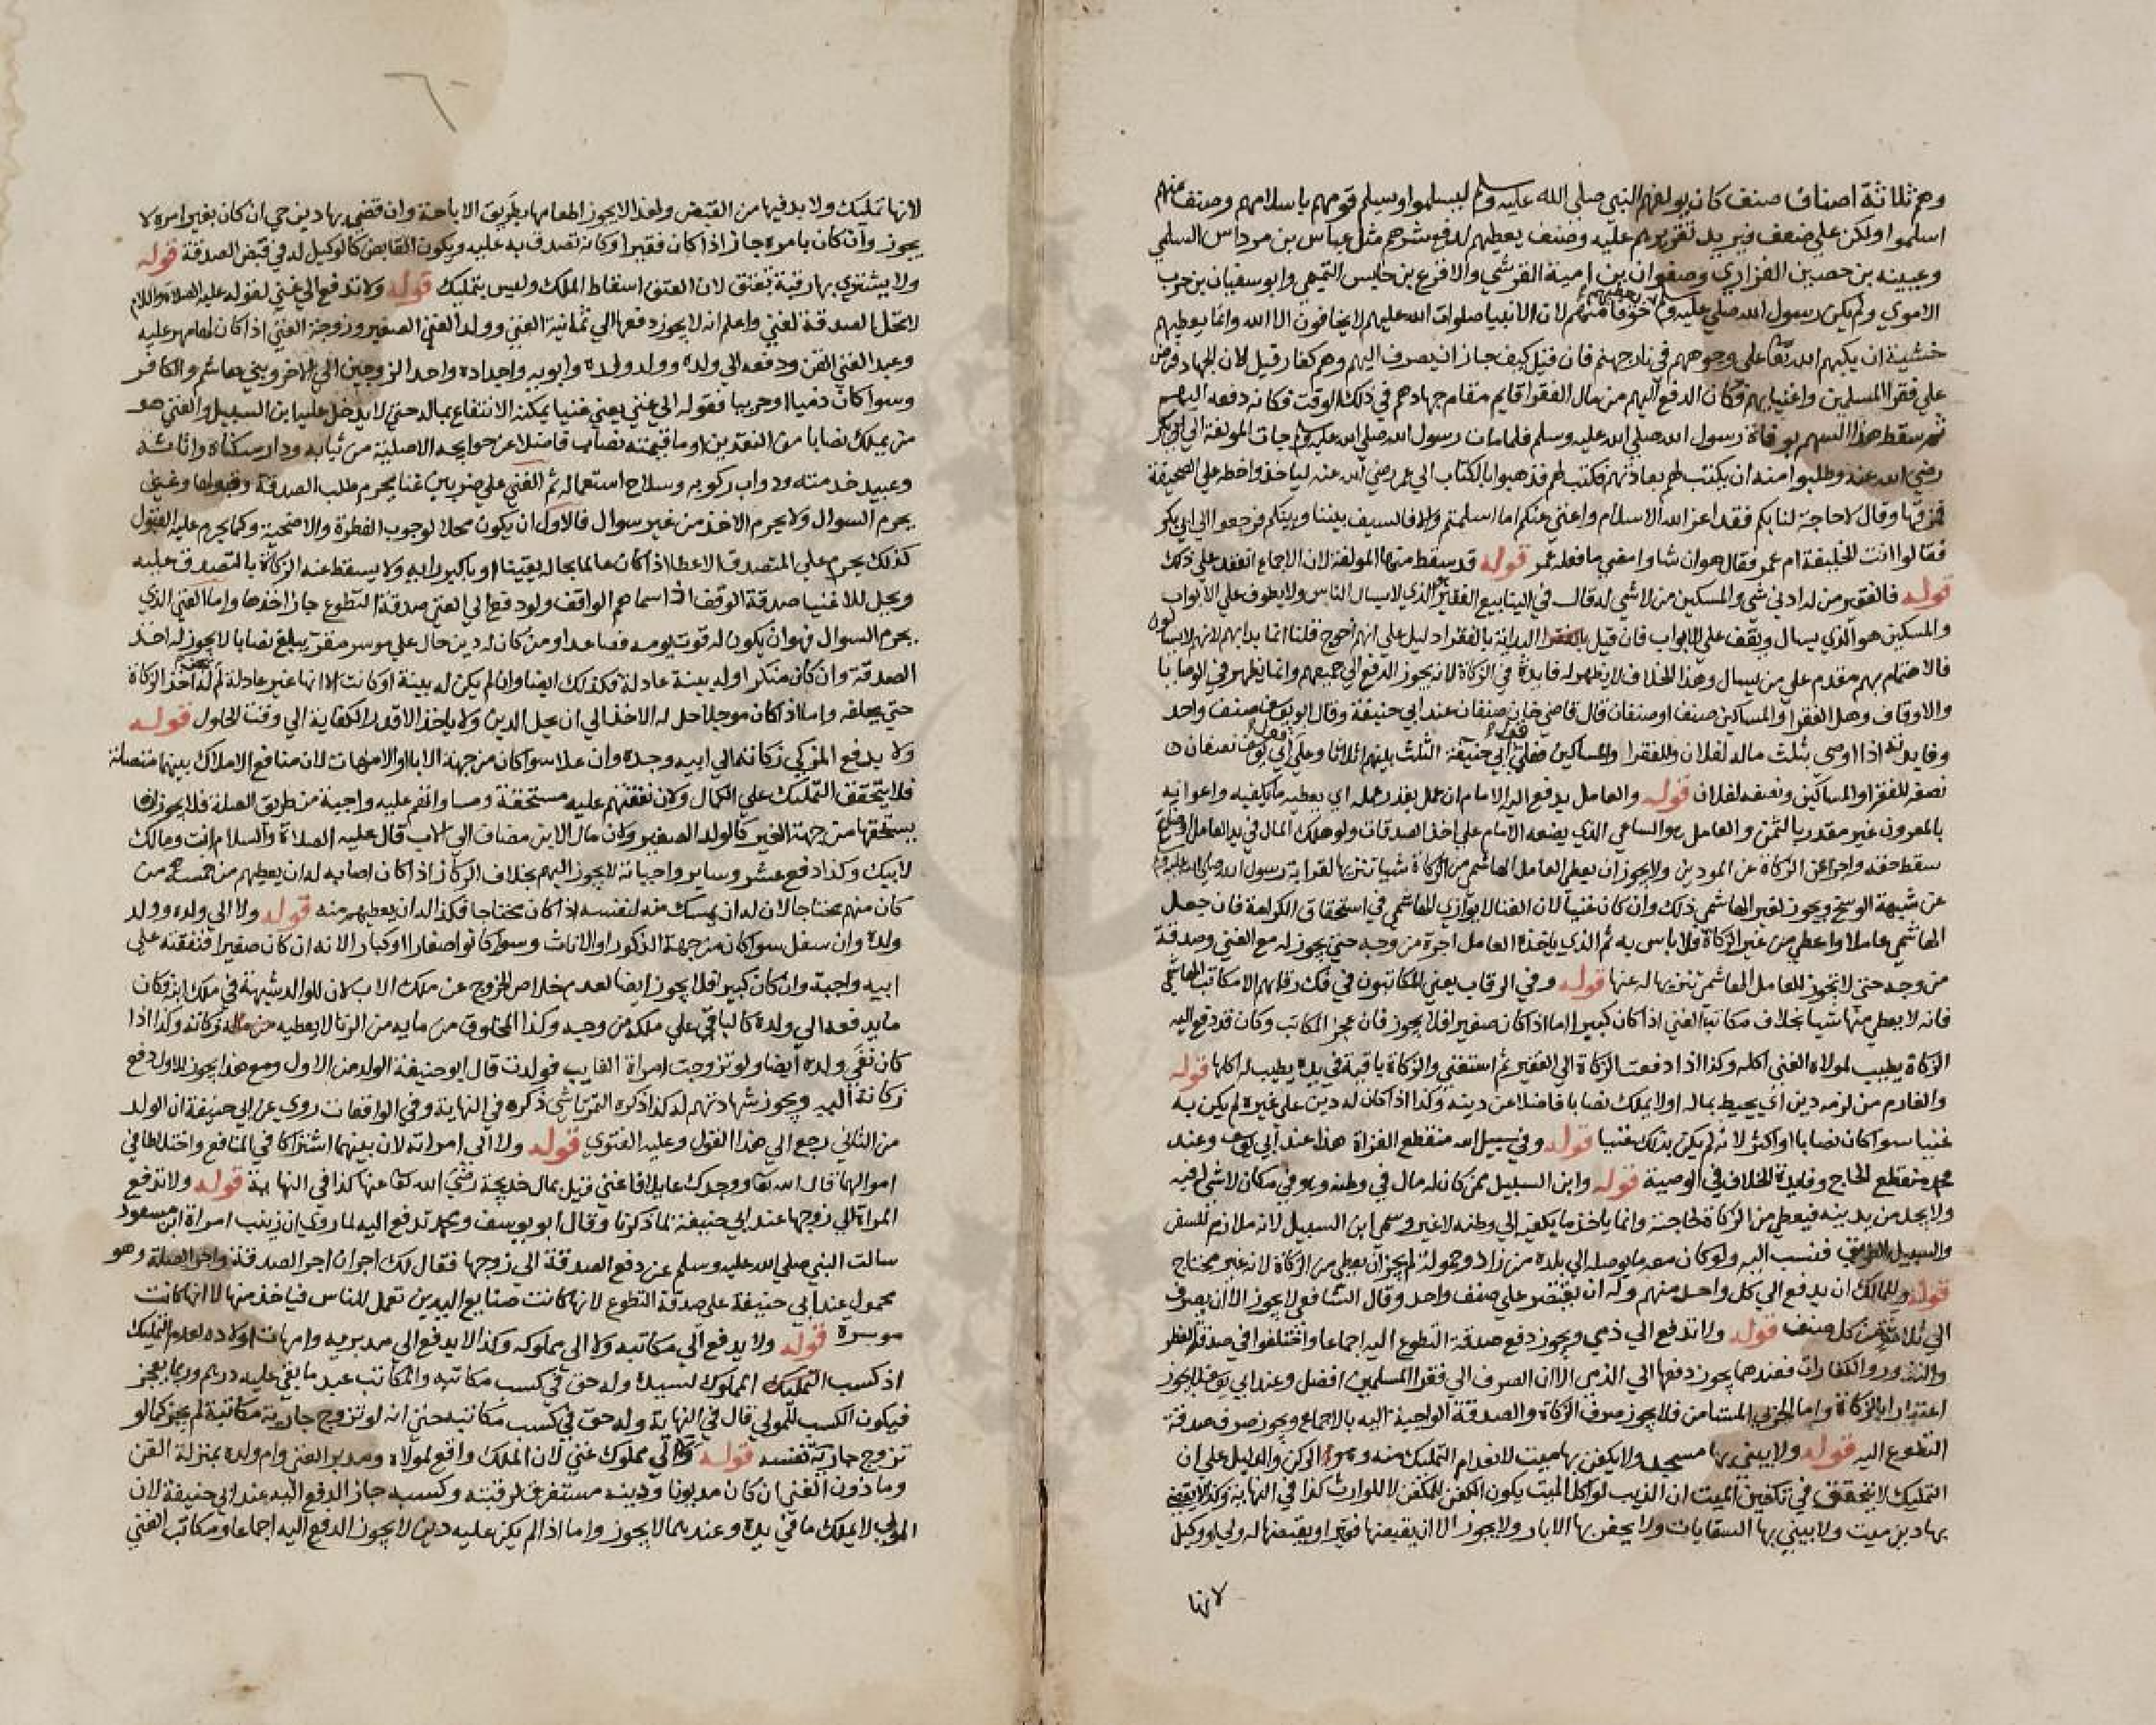 وهم ثلاثة اصناف صنف كان يولفهم النبي صلى الله عليه وسلم ليسلموا ويسلم قومهم باسلامهم وصنف منهم
اسلموا ولكن على ضعف فيريد تقريرهم عليه وصنف يعطيهم لدفع شرهم مثل عباس بن مرداس السلمي
وعيينه بن حصين الفزاري وصفوان بن امية القرشي والاقرع بن حابس التميمي وابو سفيان بن حرب
الاموي ولم يكن رسول الله صلى عليه وسلم يعطيهم خوفا منهم لان الانبيا صلوات الله عليهم لا يخافون الا الله وانما يعطيهم
خشية ان يكبهم الله تعا على وجوههم في نار جهنم فان قيل كيف جاز ان يصرف اليهم وهم كفار قيل لان الجهاد فرض
على فقرا المسلمين واغنيايهم فكان الدفع اليهم من مال الفقرا قايم مقام جهادهم في ذلك الوقت فكانه دفعه اليهم
ثم سقط هذا السهم بوفاة رسول الله صلى الله عليه وسلم فلما مات رسول الله صلى الله عليه وسلم جات المولفة الى ابي بكر
رضي الله عنه وطلبوا منه ان يكتب لهم بعادتهم فكتب لهم فذهبوا بالكتاب الى عمر رضي الله عنه لياخذوا خطه على الصحيفة
فمزقها وقال لا حاجة لنا بكم فقد اعز الله الاسلام واغنى عنكم اما اسلمتم والا فالسيف بيننا وبينكم فرجعوا الى ابي بكر
فقالوا انت الخليفة ام عمر فقال هو ان شا وامضي ما فعله عمر قوله قد سقط منها المولفة لان الاجماع انعقد على ذلك
قوله فالفقير من له ادنى شي والمسكين من لا شي له قال في الينابيع الفقير هو الذي لا يسال الناس ولا يطوف على الابواب
والمسكين هو الذي يسال ويقف على الابواب فان قيل البداية بالفقرا دليل على انهم احوج قلنا انما بدا بهم لانهم لا يسالون
فالاهتمام بهم مقدم على من يسال وهذا الخلاف لا يظهر له فايدة في الزكاة لانه يجوز الدفع الى جميعهم وانما يظهر في الوصايا
والاوقاف وهل الفقرا والمساكين صنف او صنفان قال قاضي خان صنفان عند ابي حنيفة وقال ابو يوسف صنف واحد
وفايدته اذا اوصى بثلث ماله لفلان وللفقرا والمساكين فعلى قول ابي حنيفة الثلث بينهم اثلاثا وعلى قول ابي يوسف نصفان
نصفه للفقرا والمساكين ونصفه لفلان قوله والعامل يدفع اليه الامام ان عمل بقدر عمله اي يعطيه ما يكفيه واعوانه
بالمعروف غير مقدر بالثمن والعامل هو الساعي الذي يضعه الامام على اخذ الصدقات ولو هلك المال في يد العامل
سقط حقه واجزا عن الزكاة عن المودين ولا يجوز ان يعطى العامل الهاشمي من الزكاة شيا تنزيها لقرابة رسول الله صلى الله عليه وسلم
عن شبهة الوسخ ويجوز لغير الهاشمي ذلك وان كان غنيا لان الغنا لا يوازي الهاشمي في استحقاق الكرامة فان جعل
الهاشمي عاملا واعطي من غير الزكاة فلا باس به ثم الذي ياخذه العامل اجرة من وجه حتى يجوز له مع الغنى وصدقة
من وجه حتى لا تجوز للعامل الهاشمي تنزيها له عنها قوله وفي الرقاب يعني المكاتبون في فك رقابهم الا مكاتب الهاشمي
فانه لا يعطى منها شيا بخلاف مكاتب الغني اذا كان كبيرا اما اذا كان صغيرا فلا يجوز فان عجز المكاتب وكان قد دفع اليه
الزكاة يطيب لمولاه الغني اكله وكذا اذا دفعت الزكاة الى الفقير ثم استغنى والزكاة باقية في يده يطيب له اكلها قوله
والغارم من لزمه دين اي يحيط بماله او لا يملك نصابا فاضلا عن دينه وكذا اذا كان له دين على غيره لم يكن به
غنيا سوا كان نصابا او اكثر لانه لم يكن بذلك غنيا قوله وفي سبيل الله منقطع الغزاة هذا عند ابي يوسف وعند
محمد منقطع الحاج وفايدة الخلاف في الوصية قوله وابن السبيل من كان له مال في وطنه وهو في مكان لا شي له فيه
ولا يجد من يدينه فيعطى من الزكاة لحاجته وانما ياخذ ما يكفيه الى وطنه لا غير وسمي ابن السبيل لانه ملازم للسفر
والسبيل الطريق فنسب اليه ولو كان معه ما يوصله الى بلده من زاد وحمولة لم يجز ان يعطى من الزكاة لانه غير محتاج
قوله وللمالك ان يدفع الى كل واحد منهم وله ان يقتصر على صنف واحد وقال الشافعي لا يجوز الا ان يصرف
الى ثلاثة من كل صنف قوله ولا تدفع الى ذمي ويجوز دفع صدقة التطوع اليه اجماعا واختلفوا في صدقة الفطر
والنذور والكفارات فعندهما يجوز دفعها الى الذمي الا ان الصرف الى فقرا المسلمين افضل وعند ابي يوسف لا يجوز
اعتبارا بالزكاة واما الحربي المستامن فلا يجوز صرف الزكاة والصدقة الواجبة اليه بالاجماع ويجوز صرف صدقة
التطوع اليه قوله ولا يبنى بها مسجد ولا يكفن بها ميت لانعدام التمليك منه وهو الركن والدليل على ان
التمليك لا يتحقق في تكفين الميت ان الذيب لو اكل الميت يكون الكفن للمكفن لا للوارث كذا في النهاية وكذا لا يقضى
بها دين ميت ولا يبنى بها السقايات ولا يحفر بها الابار ولا يجوز الا ان يقبضها فقير او يقبضها له ولي او وكيل
لانها
لانها تمليك ولا بد فيها من القبض ولهذا لا يجوز اطعامها بطريق الاباحة وان قضى بها دين حي ان كان بغير امره لا
يجوز وان كان بامره جاز اذا كان فقيرا وكانه تصدق به عليه ويكون القابض كالوكيل له في قبض الصدقة قوله
ولا يشترى بها رقبة تعتق لان العتق اسقاط الملك وليس بتمليك قوله ولا تدفع الى غني لقوله عليه الصلاة والسلام
لا تحل الصدقة لغني واعلم انه لا يجوز دفعها الى ثمانية الغني وولد الغني الصغير وزوجة الغني اذا كان لها مهر عليه
وعبد الغني القن ودفعه الى ولده وولد ولده وابويه واجداده واحد الزوجين الى الاخر وبني هاشم والكافر
وسوا كان ذميا او حربيا فقوله الى غني يعني غنيا يمكنه الانتفاع بماله حتى لا يدخل عليه ابن السبيل والغني هو
من يملك نصابا من النقدين او ما قيمته نصاب فاضلا عن حوايجه الاصلية من ثيابه ودار سكناه واثاثه
وعبيد خدمته ودواب ركوبه وسلاح استعماله ثم الغنى على ضربين غنا يحرم طلب الصدقة وقبولها وغنى
يحرم السوال ولا يحرم الاخذ من غير سوال فالاول ان يكون محلا لوجوب الفطرة والاضحية وكما يحرم عليه القبول
كذلك يحرم على المتصدق الاعطا اذا كان عالما بحاله يقينا او باكبر رايه ولا يسقط عنه الزكاة بالتصدق عليه
ويحل للاغنيا صدقة الوقف اذا سماهم الواقف ولو دفع الى الغني صدقة التطوع جاز اخذها واما الغنى الذي
يحرم السوال فهو ان يكون له قوت يومه فصاعدا ومن كان له دين حال على موسر مقر يبلغ نصابا لا يجوز له اخذ
الصدقة وان كان منكرا وله بينة عادلة فكذلك ايضا وان لم يكن له بينة او كانت الا انها غير عادلة لم يجز له اخذ الزكاة
حتى يحلفه واما اذا كان موجلا حل له الاخذ الى ان يحل الدين ولا ياخذ الا قدر الكفاية الى وقت الحلول قوله
ولا يدفع المزكي زكاته الى ابيه وجده وان علا سوا كان من جهة الابا او الامهات لان منافع الاملاك بينهما متصلة
فلا يتحقق التمليك على الكمال ولان نفقتهم عليه مستحقة ومساواتهم عليه واجبة من طريق الصلة فلا يجوز ان
يستحقها من جهة الغير كالولد الصغير ولان مال الابن مضاف الى الاب قال عليه الصلاة والسلام انت ومالك
لابيك وكذا دفع عشر وساير واجباته لا يجوز اليهم بخلاف الركاز اذا كان اصابه له ان يعطيهم من خمسه من
كان منهم محتاجا لان له ان يمسك منه لنفسه اذا كان محتاجا فكذا له ان يعطيهم منه قوله ولا الى ولده وولد
ولده وان سفل سوا كان من جهة الذكور او الاناث وسوا كانوا صغارا او كبارا لانه ان كان صغيرا فنفقته على
ابيه واجبة وان كان كبيرا فلا يجوز ايضا لعدم خلاص الخروج عن ملك الاب لان للوالد شبهة في ملك ابنه فكان
ما يدفعه الى ولده كالباقي على ملكه من وجه وكذا المخلوق من مايه من الزنا لا يعطيه من زكاته وكذا اذا
كان نفي ولده ايضا ولو تزوجت امراة الغايب فولدت قال ابو حنيفة الولد من الاول ومع هذا يجوز للاول دفع
زكاته اليه ويجوز شهادتهم له كذا ذكره التمرتاشي ذكره في النهاية وفي الواقعات روي عن ابي حنيفة ان الولد
من الثاني رجع الى هذا القول وعليه الفتوى قوله ولا الى امراته لان بينهما اشتراكا في المنافع واختلاطا في
اموالهما قال الله تعا ووجدك عايلا فاغنى قيل بمال خديجة رضي الله تعا عنها كذا في النهاية قوله ولا تدفع
المراة الى زوجها عند ابي حنيفة لما ذكرنا وقال ابو يوسف ومحمد تدفع اليه لما روي ان زينب امراة ابن مسعود
سالت النبي صلى الله عليه وسلم عن دفع الصدقة الى زوجها فقال لك اجران اجر الصدقة واجر الصلة وهو
محمول عند ابي حنيفة على صدقة التطوع لانها كانت صنايع اليدين تعمل للناس فياخذ منها لا انها كانت
موسرة قوله ولا يدفع الى مكاتبه ولا الى مملوكه وكذا لا يدفع الى مدبريه وامهات اولاده لعدم التمليك
اذ كسب المملوك لسيده وله حق في كسب مكاتبه والمكاتب عبد ما بقي عليه درهم وربما يعجز
فيكون الكسب للمولى قال في النهاية وله حق في كسب مكاتبه حتى انه لو تزوج جارية مكاتبه لم يجز كما لو
تزوج جارية نفسه قوله ولا الى مملوك غني لان الملك واقع لمولاه ومدبر الغني وام ولده بمنزلة القن
وماذون الغني ان كان مديونا ودينه مستغرق لرقبته وكسبه جاز الدفع اليه عند ابي حنيفة لان
المولى لا يملك ما في يده وعندهما لا يجوز واما اذا لم يكن عليه دين لا يجوز الدفع اليه اجماعا ومكاتب الغني